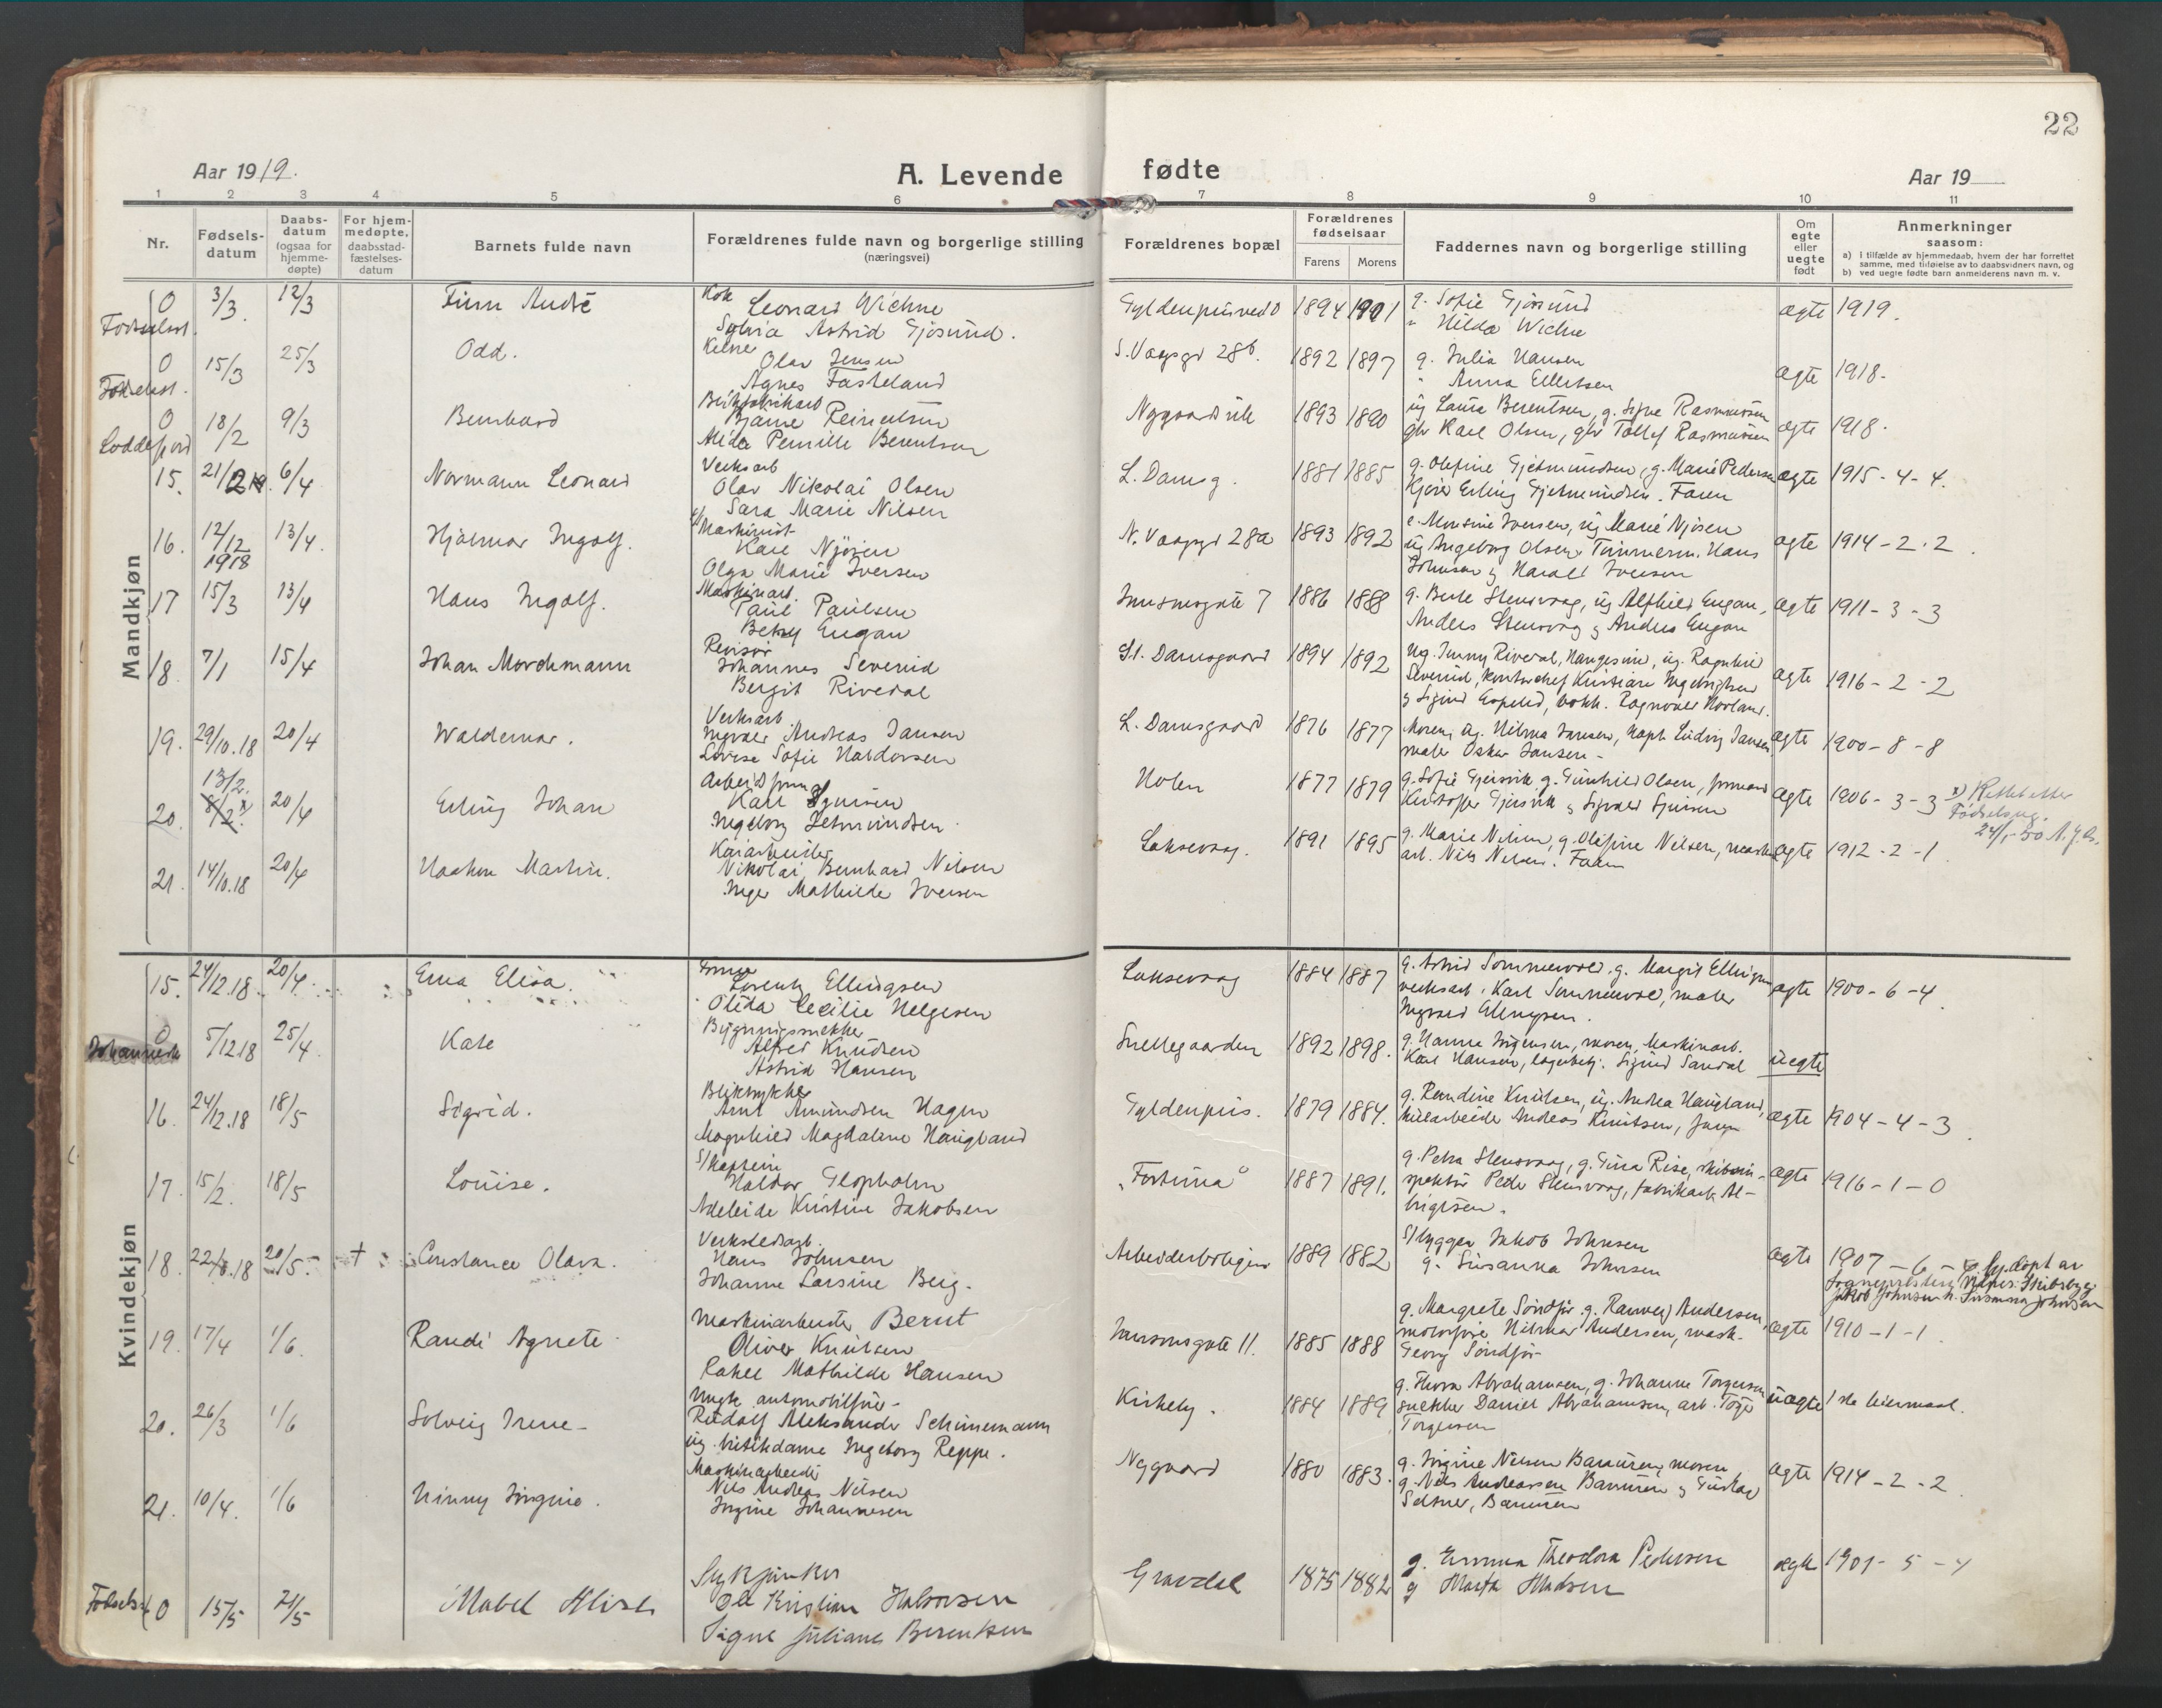 22
Aar 1919.
A. Levende fødte
Aar 19
1 2 3 4 5 6 7 8 9 10 11
Nr.
Fødsels-
datum
Daabs-
datum
(ogsaa for
hjemme-
døpte)
For hjem-
medøpte,
daabsstad-
fæstelses-
datum
Barnets fulde navn
Forældrenes fulde navn og borgerlige stilling
(næringsvei)
Forældrenes bopæl
Forældrenes
fødselsaar
Farens Morens
Faddernes navn og borgerlige stilling
Om
egte
eller
uegte
født
Anmerkninger
saasom:
a) i tilfælde av hjemmedaab, hvem der har forrettet
samme, med tilføielse av to daabsvidners navn, og
b) ved uegte fødte barn anmelderens navn m. v.
Mandkjøn
0 3/3. 12/3 Finn André Kok Leonard Wichne Gyldenprisved 0 1894 1901 g. Sofie Gjøsund ægte 1919.
Fødselsst. Sylvia Astrid Gjøsund. " Hilda Wichne
0 15/3 25/3 Odd. Kelner Olav Jensen S. Vaagsgt 28b. 1892 1897 g. Julia Hansen ægte 1918.
Fødselsst. Agnes Fasteland " Anna Ellertsen
0 18/2 9/3 Bernhard Bjarne Reinertsen Nygaardsvik 1893 1890 ug Laura Berentsen, g. Signe Rasmussen ægte 1918.
Loddefjord Alida Pernille Berentsen gbr Karl Olsen, gbr Tollef Rasmussen
15. 21/2 19. 6/4 Normann Leonard Verksarb Olav Nikolai Olsen L. Damsg. 1881 1885 g. Olefine Gjetmundsen, g. Marie Pedersen ægte 1915-4-4.
Sara Marie Nilsen Kjører Erling Gjetmundsen. Faren
16. 12/12 1918 13/4. Hjalmar Ingolf. Maskinist Karl Njøsen N. Vaagsgt 28a 1893 1892 e. Monsine Iversen, ug Marie Njøsen ægte 1914-2-2.
Olga Marie Iversen ug Ingeborg Olsen, Tømmerm. Hans
Johnsen og Harald Iversen
17 15/3 13/4 Hans Ingolf. Maskinarb. Paul Paulsen 7 1886 1888 g. Berte Stensvaag, ug Alfhild Eugan, ægte 1911-3-3
Betsy Eugan Anders Stensvaag og Anders Eugan
18 7/1 15/4 Johan Mordmann Revisor Johannes Severud St. Damsgaard 1894 1892 Ug. Jenny Rivedal, Haugesund, ug. Ragnhild ægte 1916-2-2
Bergit Rivedal Severud, kontorchef Kristian Ingebrigtsen
og Sigurd Espeled, bokh. Ragnvald Hovland.
19. 29/10.18 20/4 Waldemar. Verksarb. Ingvald Andreas Jansen L. Damsgaard 1876 1877 Moren, ug. Hilma Jansen, kapt. Ludvig Jansen, ægte 1900-8-8
Lovise Sofie Haldorsen maler Oskar Jansen-
20. 13/2. 8/2 x) 20/4 Erling Johan Arbeidsform. Karl Sjursen Holen 1877 1879 g. Sofie Gjersvik g. Gunhild Olsen, formand ægte 1906-3-3 x) Rettet etter
Ingeborg Jetmundsen Kristoffer Gjersvik og Sigvald Sjursen Fødselsreg.
24/1-50 A.J.B.
21. 14/10.18 20/4 Haakon Martin. Kaiarbeider Nikolai Bernhard Nilsen Laksevaag. 1891 1895 g. Marie Nilsen, g. Olefine Nilsen, mask. ægte 1912-2-1
Inga Mathilde Iversen arb. Nils Nilsen. Faren
Kvindekjøn
15. 24/12.18. 20/4. Erna Elisa. Lorentz Ellingsen Laksevaag 1884 1887 g. Astrid Sommervold. g. Margit Ellingsen ægte 1900-6-4
Olida Cecilie Helgesen verksarb. Karl Sommervold, maler
Ingvald Ellingsen.
0 5/12.18 25/4. Kate Bygningssnekker Alfred Knudsen Snellegaarden 1892 1898. g. Hanna Jørgensen, moren, Maskinarb. uegte
Johanneskk Astrid Hansen Karl Hansen, lagerbetj. Sigurd Sandal
16. 24/12.18 18/5 Sigrid. Bliktrykker Arnt Amundsen Hagen Gyldenpris. 1879 1884. g. Randine Knutsen, ug. Andrea Haugland, ægte 1904-4-3.
Magnhild Magdalene Haugland Andreas Knutsen, faren
17. 15/2. 18/5 Louise. S/kaptein Haldor Glopholm "Fortuna" 1887 1891. g. Petra Stensvaag, g. Gina Rise, skibsin- ægte 1916-1-0
Adeleide Kristine Jakobsen spektør Peder Stensvaag, fabrikarb. Al-
brigtsen.
18. 22/8.18 20/5. + Constance Olava. Verkstedsarb. Hans Johnsen Arbeiderboligen 1889 1882 S/bygger Jakob Johnsen ægte 1907-6-5. hj.døpt av
Johanne Larsine Berg. g. Susanna Johnsen Sogneprästen. Vidner: Skibsbyg.
Jakob Johnsen h. Susanna Johnsen
19. 17/4 1/6. Randi Agnete Maskinarbeider Bernt Jansonsgate 11. 1885 1888 g. Margrete Søndfør g. Ranveig Andersen, ægte 1910-1-1.
Oliver Knutsen motorfører Hilmar Andersen, mask.
Rakel Mathilde Hansen Georg Søndfør
20. 26/3 1/6 Solveig Irene- Ungk. automobilfører- Kirkeby. 1884 1889 g. Thora Abrahamsen, g. Johanne Torgersen uægte 1ste leiermaal.
Rudolf Aleksander Schünemann snekker Daniel Abrahamsen, arb. Torger
ug. butikdame Ingeborg Reppe. Torgersen
21. 10/4. 1/6 Ninny Jørgine. Maskinarbeider Nils Andreas Nilsen Nygaard 1880 1883. g. Jørgine Nilsen, moren ægte 1914-2-2.
Jørgine Johannesen g. Nils Andreassen og Gustav
Fødselsst. 0 15/5 21/5 Mabel Alise Ole Kristian Halvorsen Gravdal 1875 1882 g. Emma Theodora Pedersen ægte 1901-5-4
Signe Juliane Berentsen g Marta Madsen